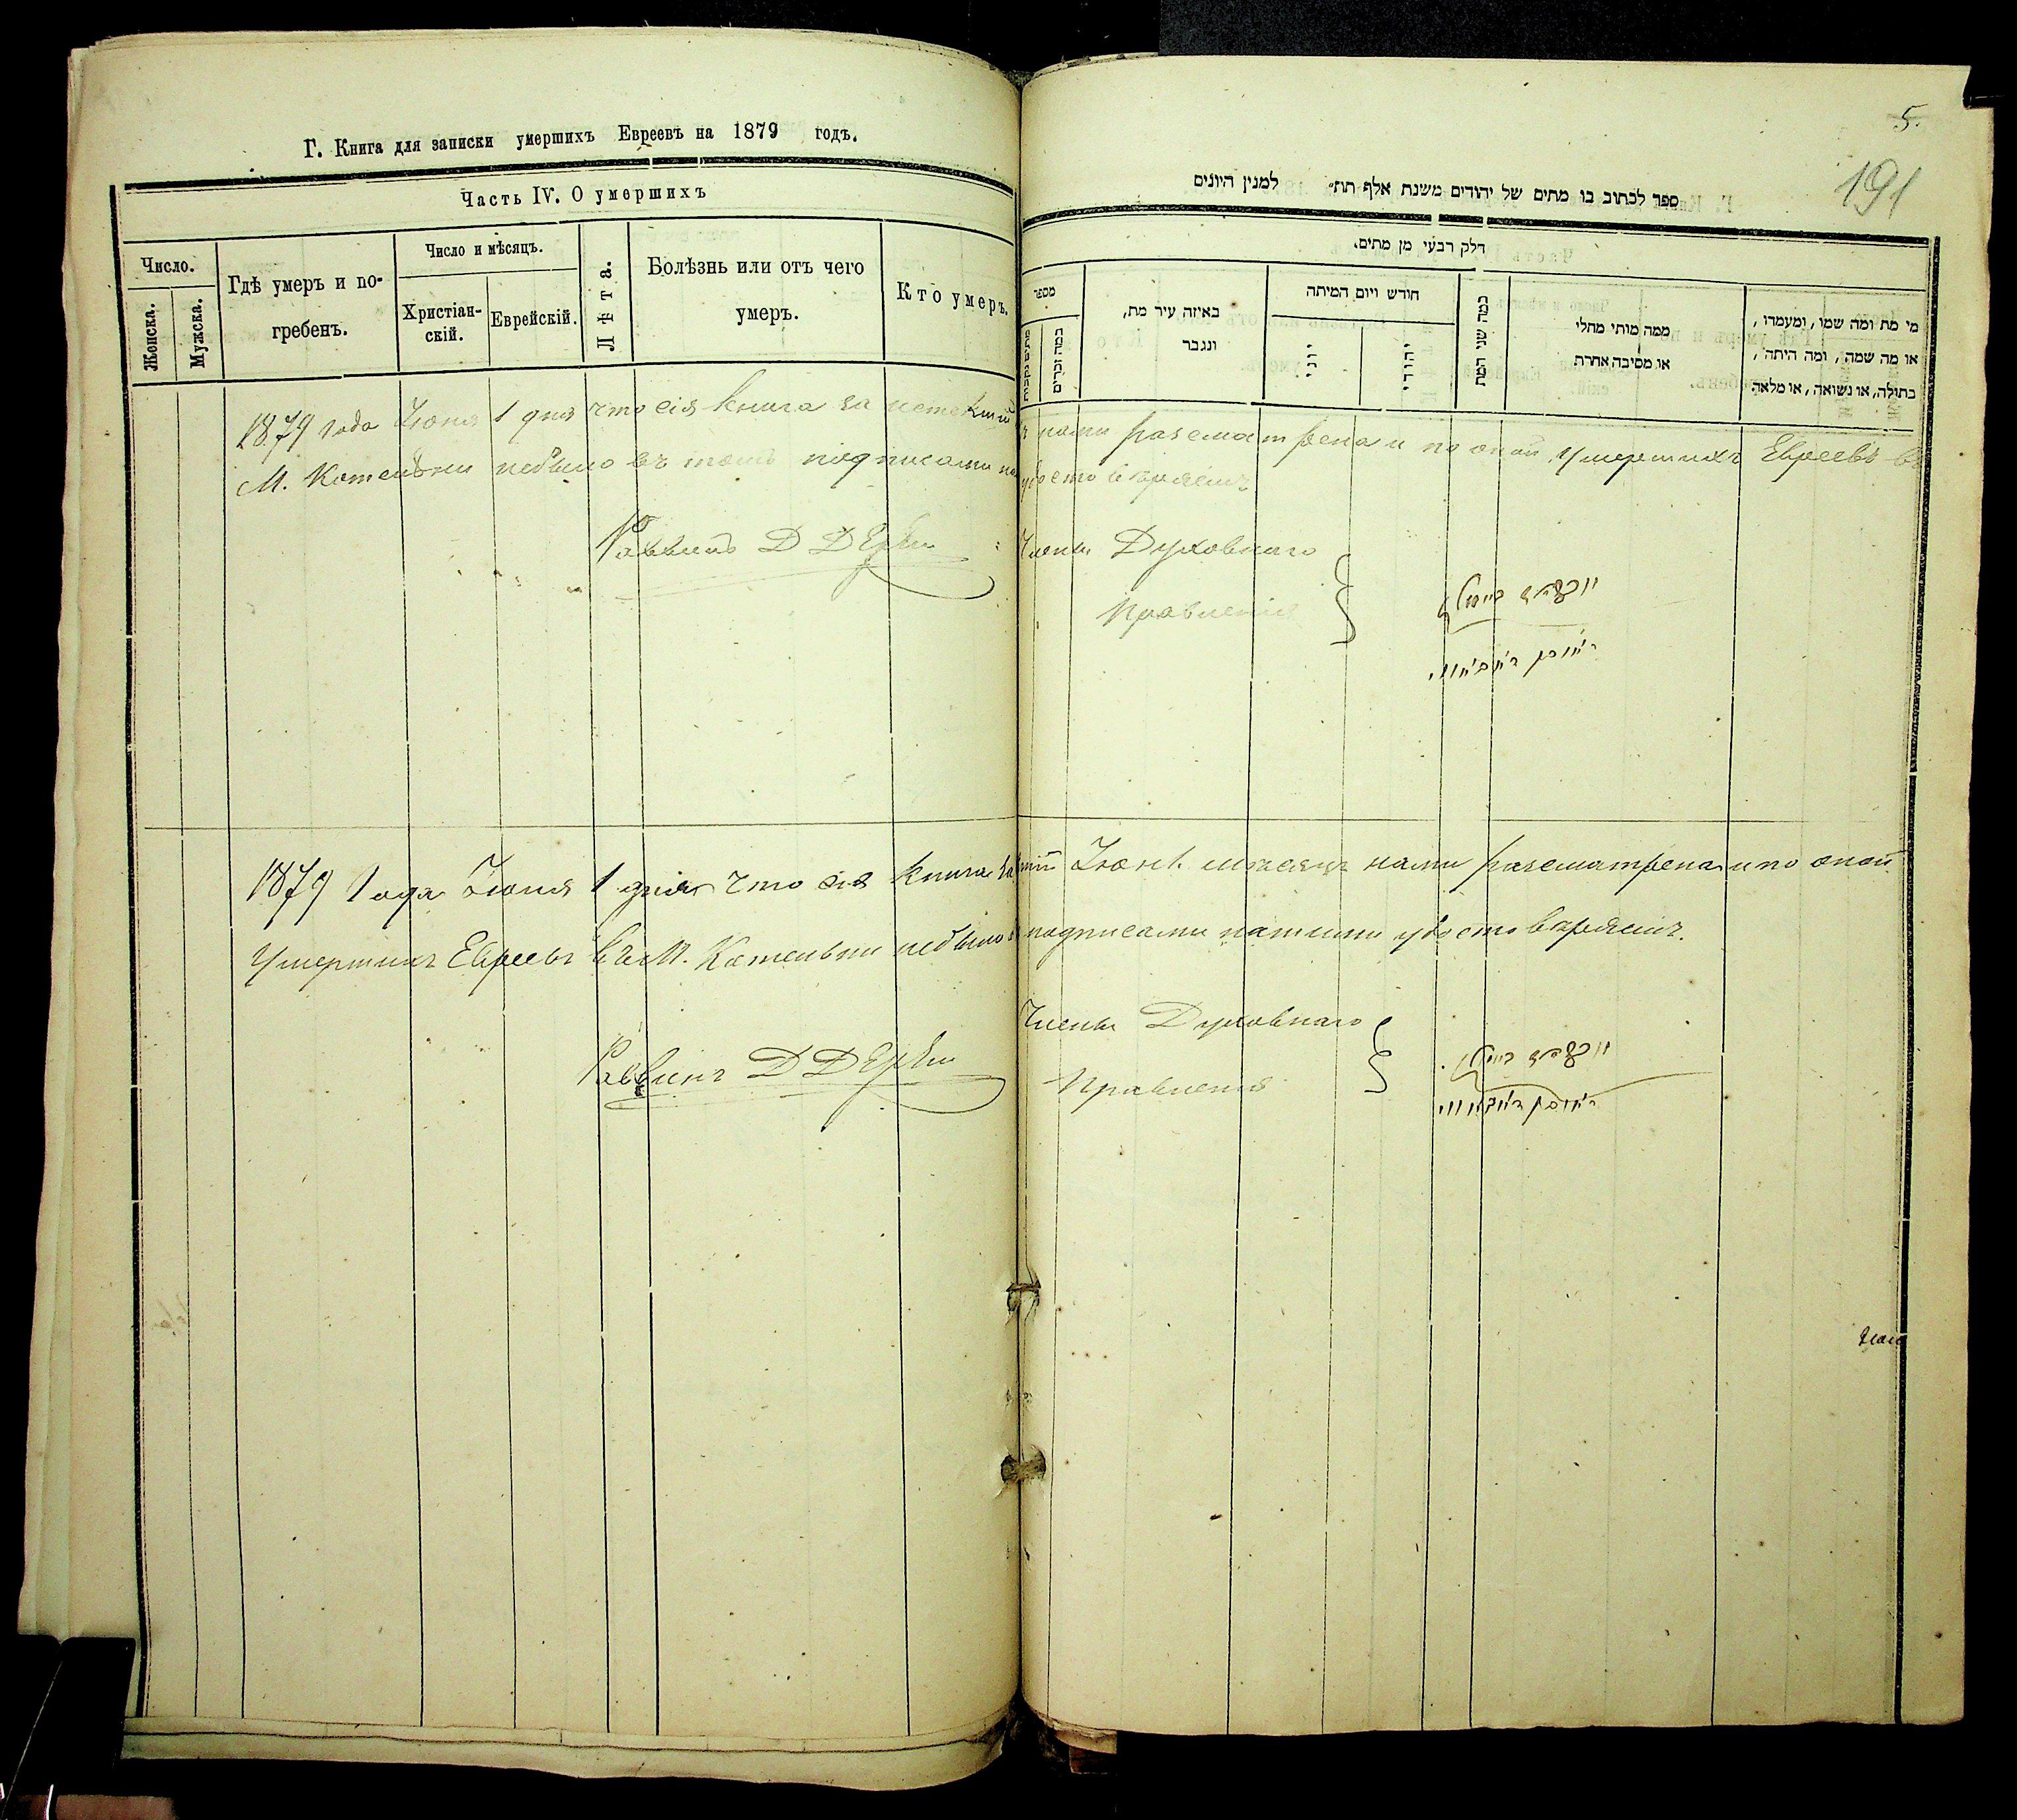 Г. Книга для записки умершихъ Евреевъ на 1879 годъ.
Часть IV. О умершихъ
Число.
Женска.
Мужска.
Гдѣ умеръ и по-
гребенъ.
Число и мѣсяцъ.
Христіан-
скій.
Еврейскій.
Лѣта.
Болѣзнь или отъ чего
умеръ.
Кто умеръ.
5.
191
ספר לכתוב בו מתים של יהודים משנת אלף תת״ למנין היונים
חלק רבעי מן מתים.
מספר
כמה זכרים
באיזה עיר מת,
ונגבר
חודש ויום המיתה
יוני
יהודי
כמה שני המת
ממה מותי מחלי
או מסיבה אחרת
מי מת ומה שמו, ומעמדו,
או מה שמה, ומה היתה,
בתולה, או נשואה, או מלאה
1879 года Іюня 1 дня что сія книга за истекшій нами разсмотрена и по оной Умершихъ Евреевъ въ
М. Котельни небыло въ томъ подписами удостоверяемъ
Раввинъ Д Д
Члены Духовнаго
Правленія
1879 Года Іюня 1 дня что сія книга Іюнь мѣсяцъ нами разсматрена и по оной
Умершихъ Евреевъ въ М. Котельни небыло подписами нашими удостоверяемъ.
Раввинъ Д Д
Члены Духовнаго
Правленія